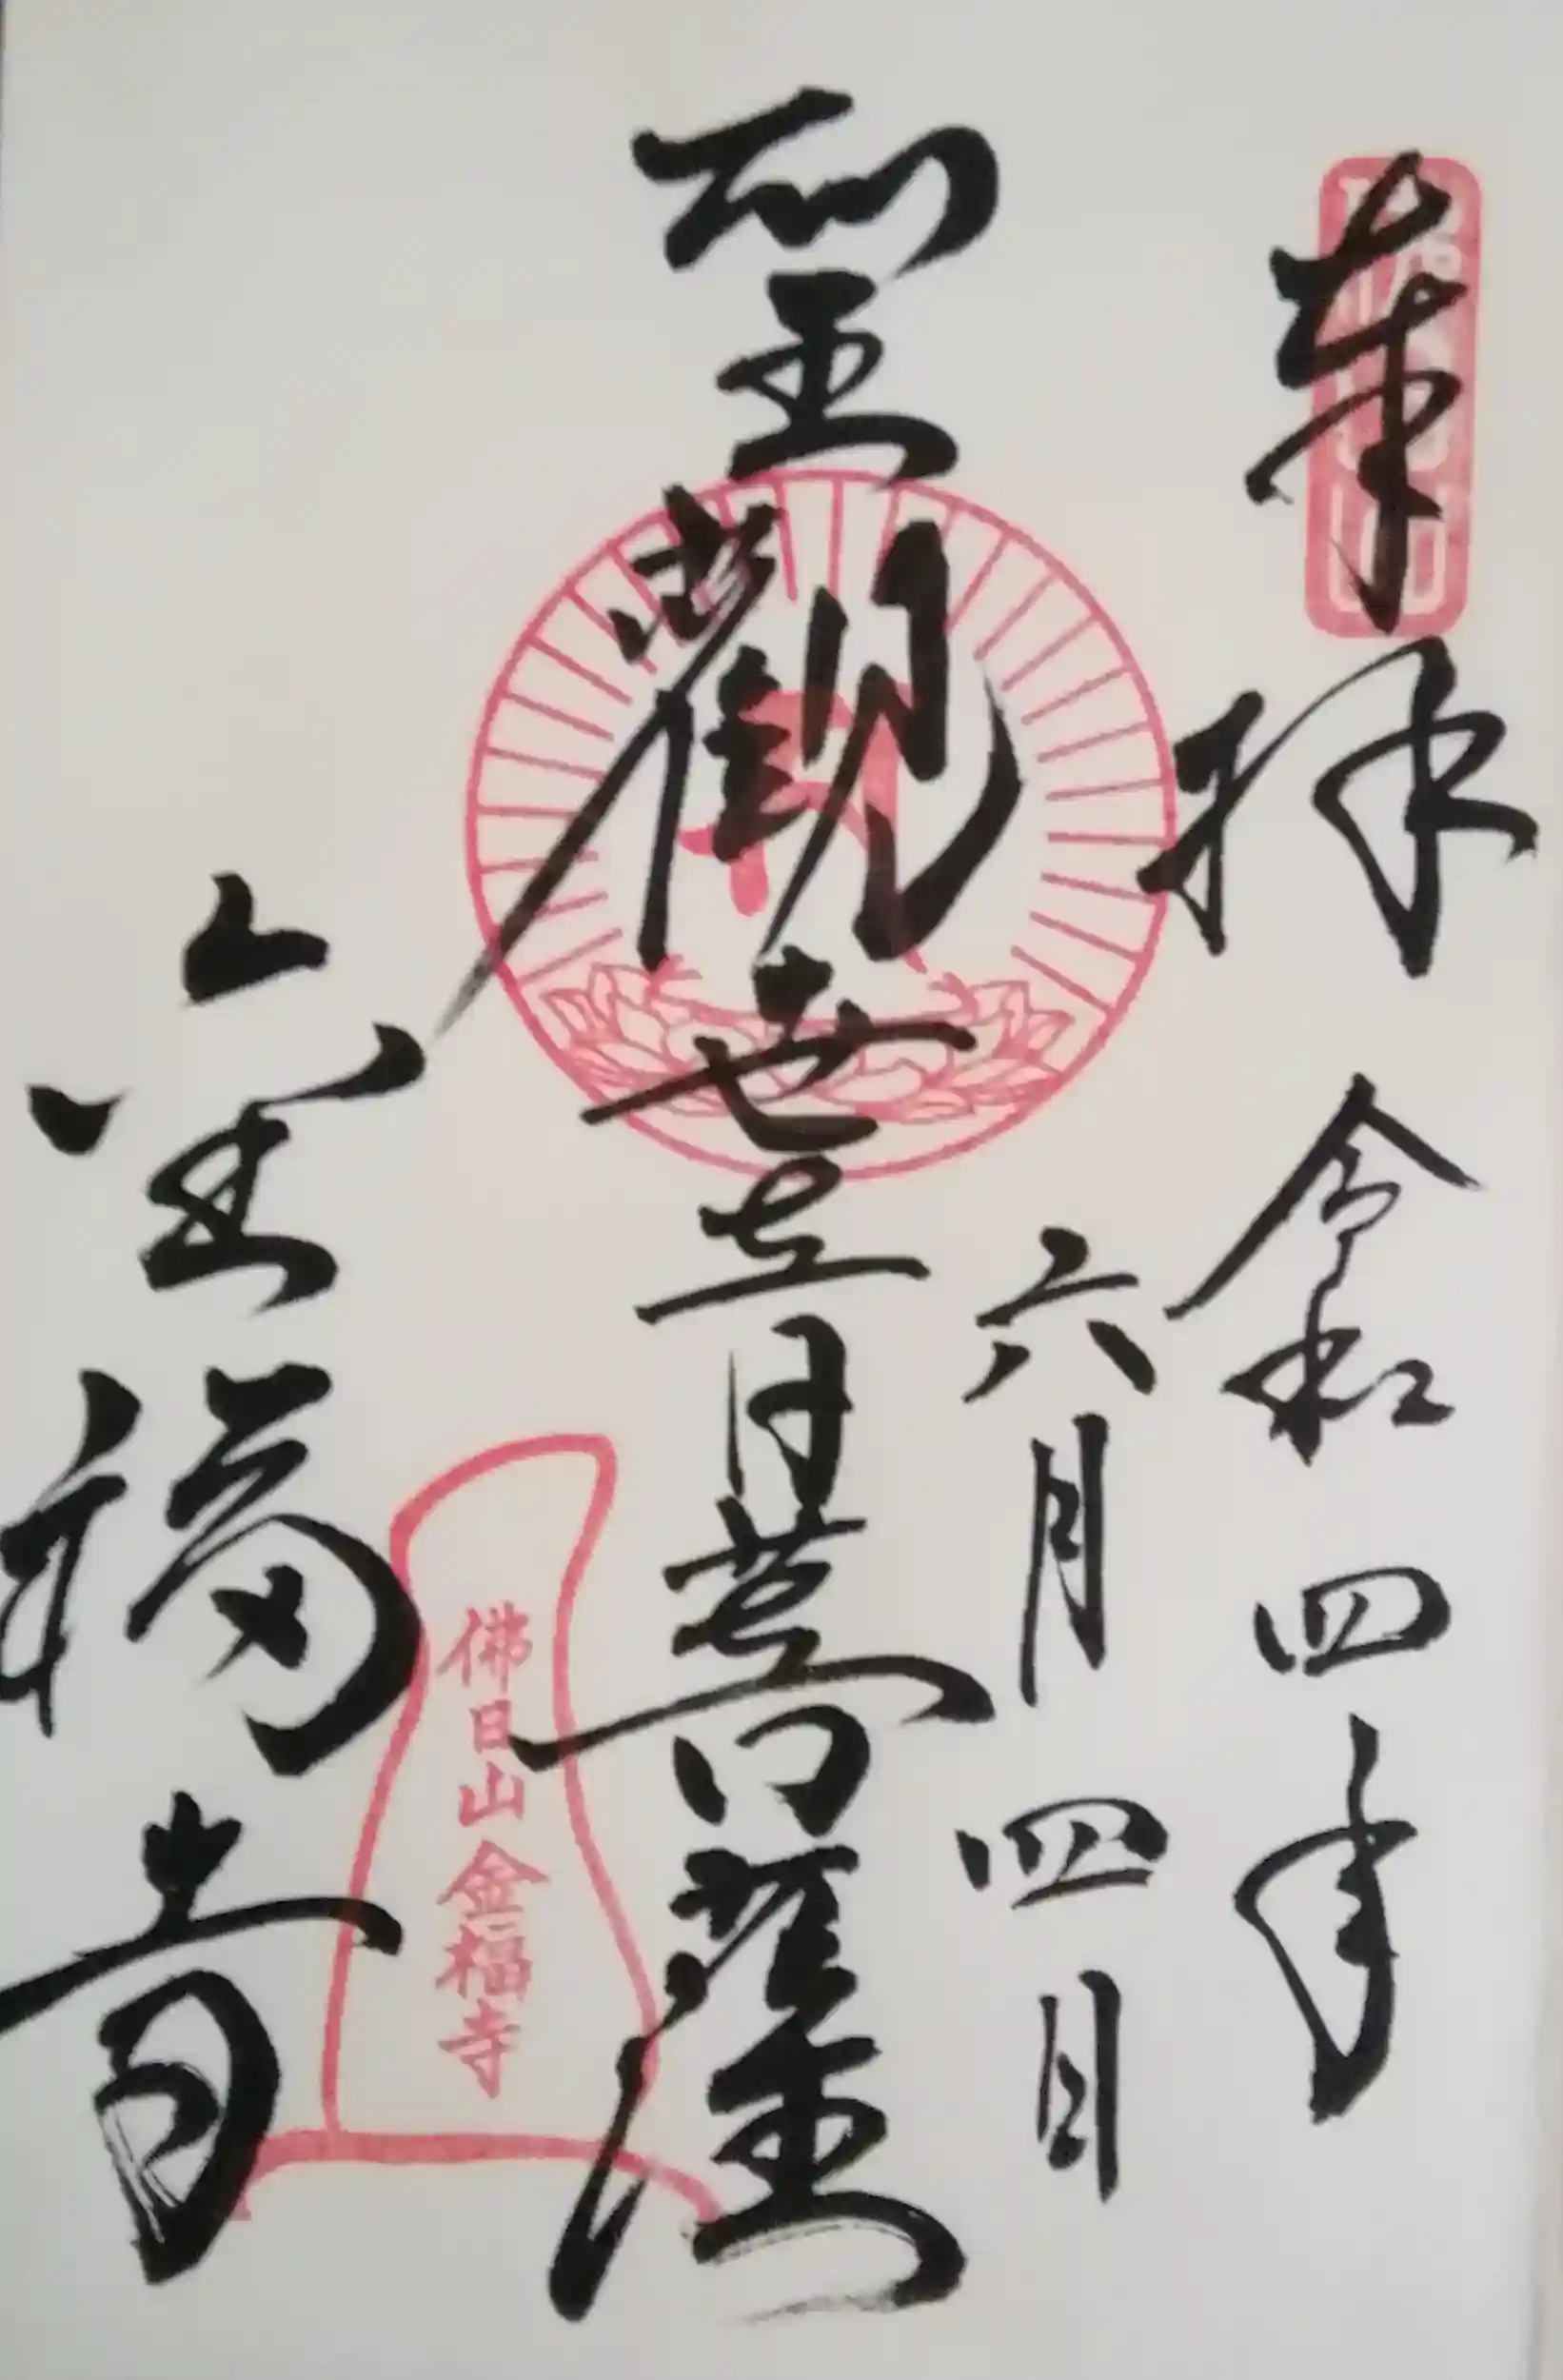 奉拝
令和四年
六月四日
聖觀世音菩薩
佛日山金福寺
金福寺